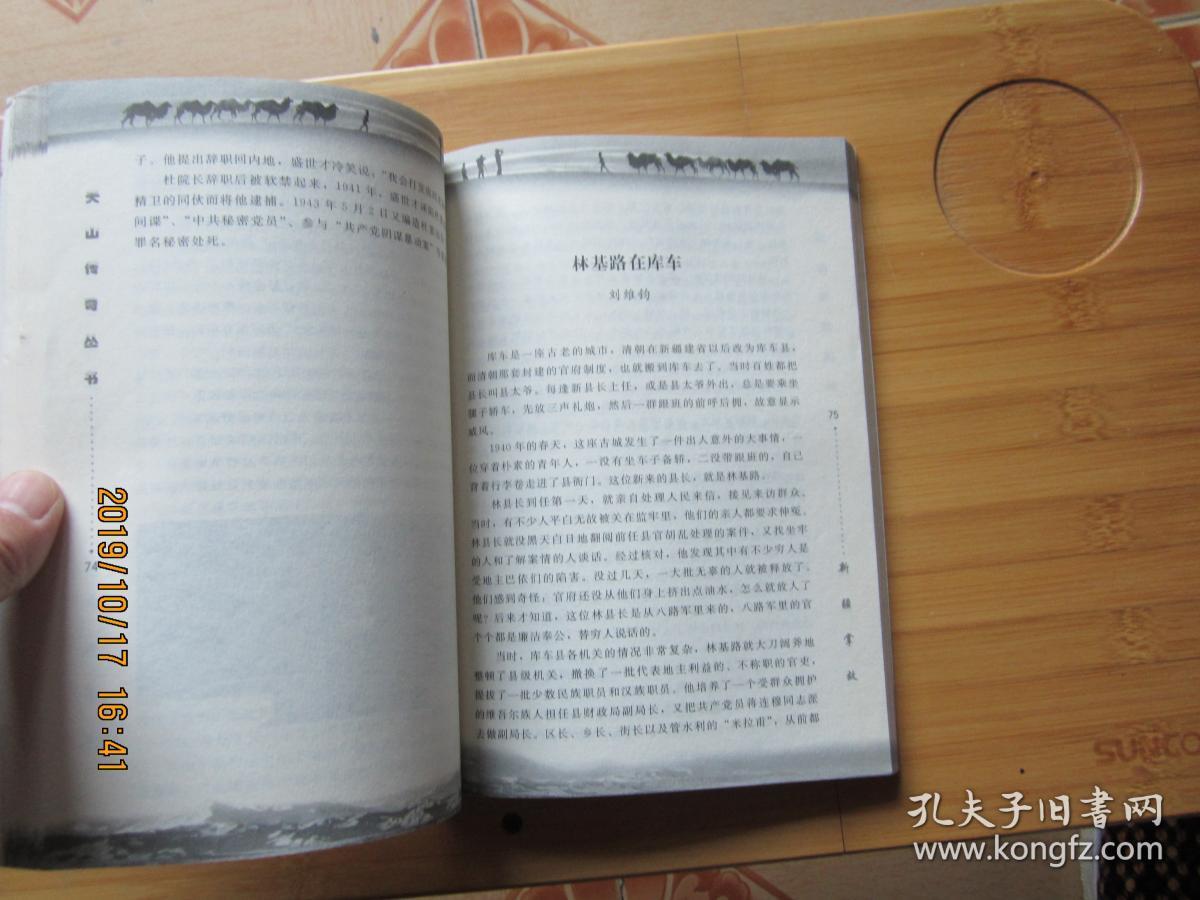 子。他提出辞职回内地，盛世才冷笑说，“我会打发
杜院长辞职后被软禁起来，1941 年，盛世才诬
精卫的同伙而将他逮捕。1943 年 5 月 2 日又编造
间谍”、“中共秘密党员”、参与“共产党阴谋暴动案”
罪名秘密处死。
天山传奇丛书
74
林基路在库车
刘维钧
库车是一座古老的城市，清朝在新疆建省以后改为库车县，
而清朝那套封建的官府制度，也就搬到库车去了。当时百姓都把
县长叫县太爷。每逢新县长上任，或是县太爷外出，总是要乘坐
骡子轿车，先放三声礼炮，然后一群跟班的前呼后拥，故意显示
威风。
1940 年的春天，这座古城发生了一件出人意外的大事情，一
位穿着朴素的青年人，一没有坐车子备轿，二没带跟班的，自己
背着行李卷走进了县衙门。这位新来的县长，就是林基路。
林县长到任第一天，就亲自处理人民来信，接见来访群众。
当时，有不少人平白无故被关在监牢里，他们的亲人都要求伸冤。
林县长就没黑天白日地翻阅前任县官胡乱处理的案件，又找坐牢
的人和了解案情的人谈话。经过核对，他发现其中有不少穷人是
受地主巴依们的陷害。没过几天，一大批无辜的人就被释放了。
他们感到奇怪；官府还没从他们身上挤出点油水，怎么就放人了
呢？后来才知道，这位林县长是从八路军里来的，八路军里的官
个个都是廉洁奉公，替穷人说话的。
当时，库车县各机关的情况非常复杂，林基路就大刀阔斧地
整顿了县级机关，撤换了一批代表地主利益的、不称职的官吏，
提拔了一批少数民族职员和汉族职员。他培养了一个受群众拥护
的维吾尔族人担任县财政局副局长，又把共产党员蒋连穆同志派
去做副局长。区长、乡长、街长以及管水利的“米拉甫”，从前都
75
新疆掌故
2019/10/17 16:41
SUNCO
孔夫子旧书网
www.kongfz.com